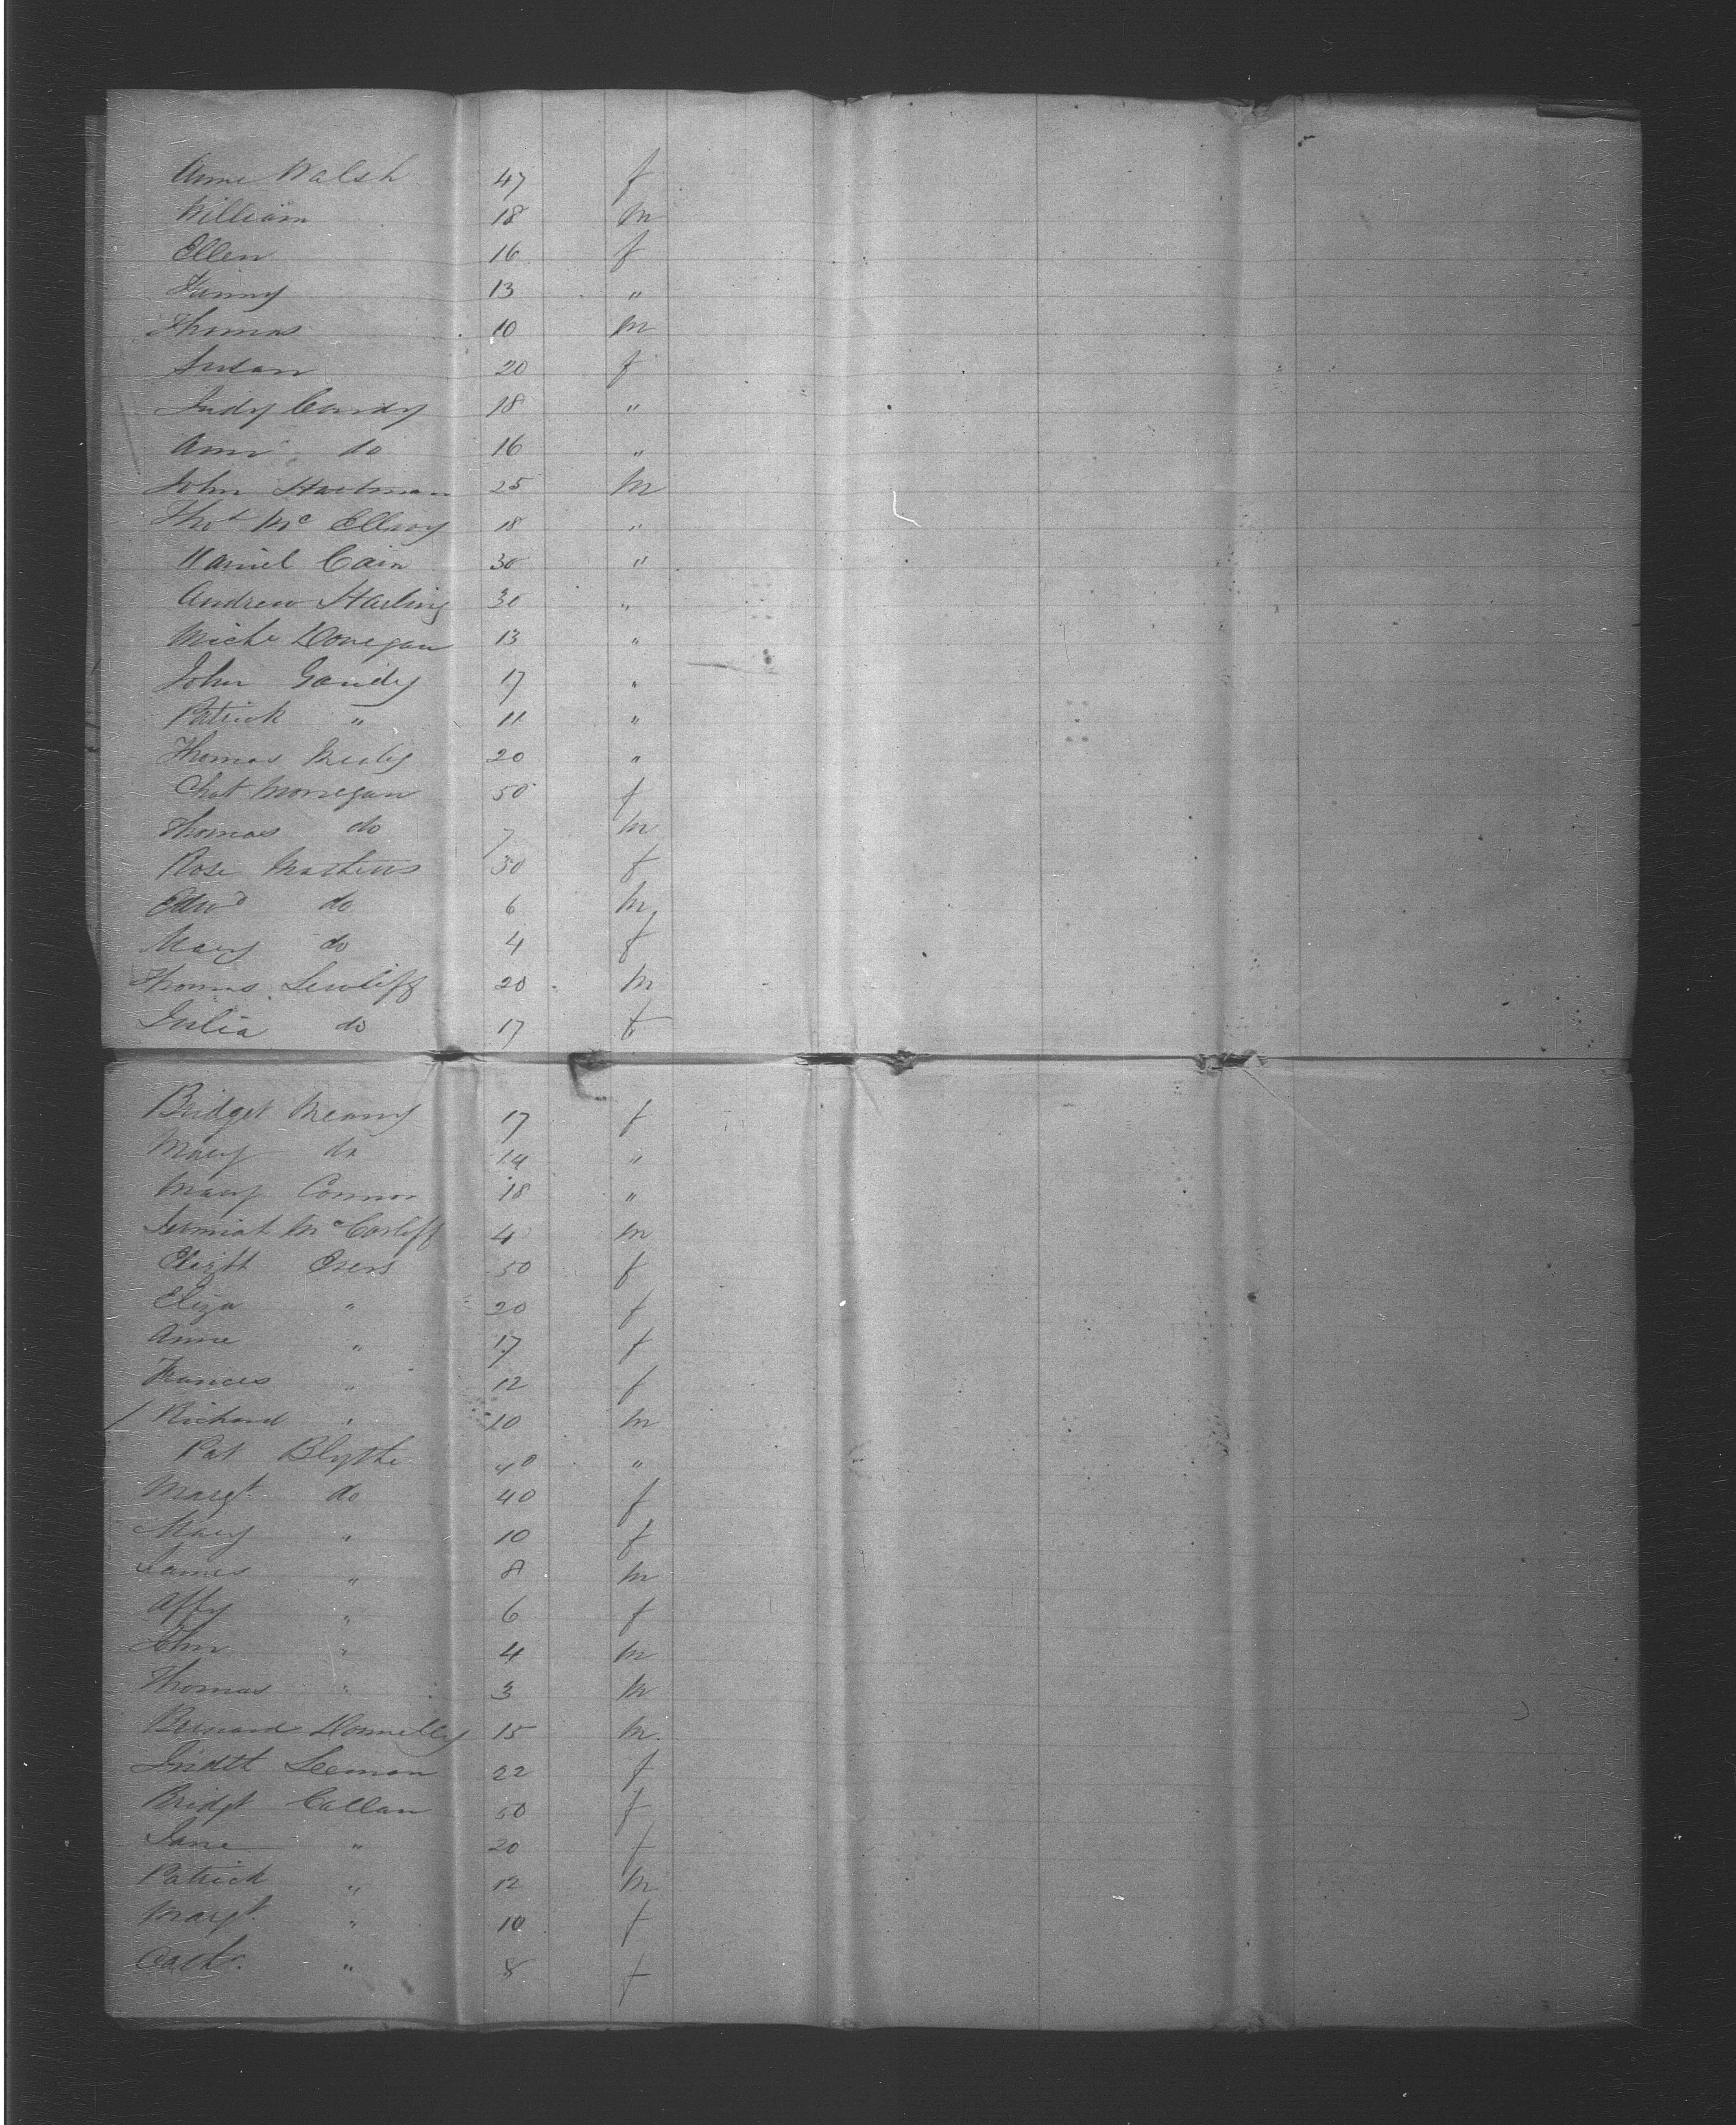 Anne Walsh 47 f
William 18 m
Ellen 16 f
Fanny 13 "
Thomas 10 m
Susan 20 f
Judy 18 "
Ann do 16 "
John Hartman 25 m
Thos Mc Ellroy 18 "
Daniel Cain 30 "
Andrew Harling 30 "
Miche Donegan 13 "
John Gandy 17 "
Patrick " 11 "
Thomas 20 "
Monegan 50 f
Thomas do 7 m
Rose Mathews 30 f
Edwd do 6 m
Mary do 4 f
Thomas 20 m
Julia do 17 f
Bridget 17 f
Mary do 14 "
Mary Connor 18 "
m
Elizth 50 f
Eliza " 20 f
Anne " 17 f
Frances " 12 f
Richard " 10 m
Pat Blythe 40 "
Margt do 40 f
Mary " 10 f
James " 8 m
Affy " 6 f
John " 4 m
Thomas " 3 m
Bernard Donnelly 15 m
Judith Leeman 22 f
Bridgt Callan 50 f
Jane " 20 f
Patrick " 12 m
Margt " 10 f
Cath. " 8 f